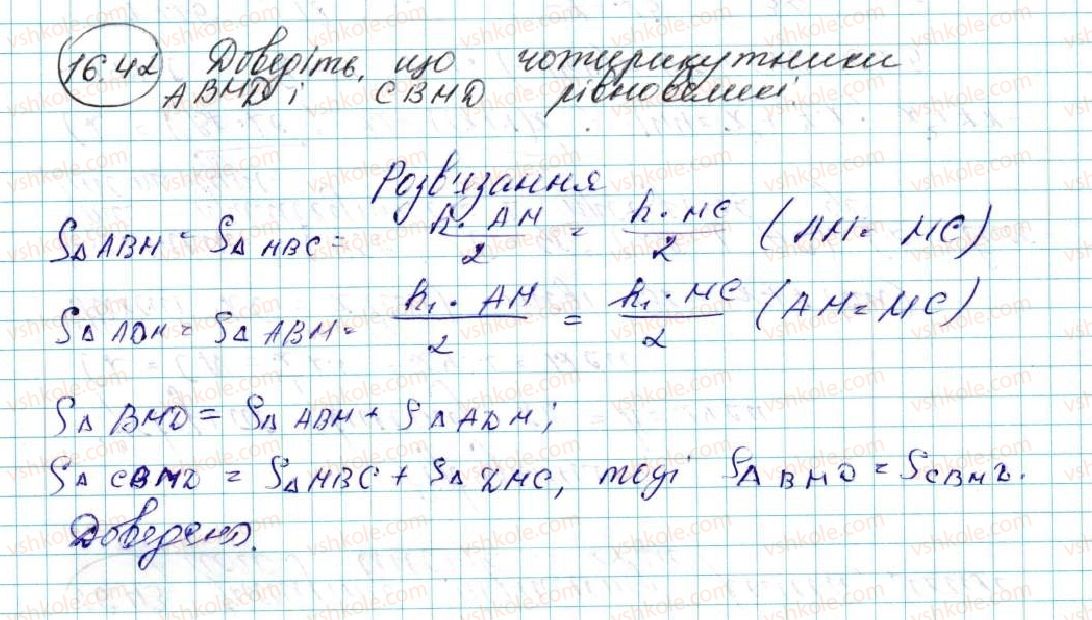 16.42 Доведіть, що чотирикутники
ABMD і CBMD рівновеликі.
Розв'язання
S∆ABM = S∆MBC = h · AM / 2 = h · MC / 2 (AM = MC)
S∆ADM = S∆ABM = h₁ · AM / 2 = h₁ · MC / 2 (AM = MC)
S∆BMD = S∆ABM + S∆ADM;
S∆CBMD = S∆MBC + S∆DMC, тоді SABMD = SCBMD.
Доведено.
vshkole.com